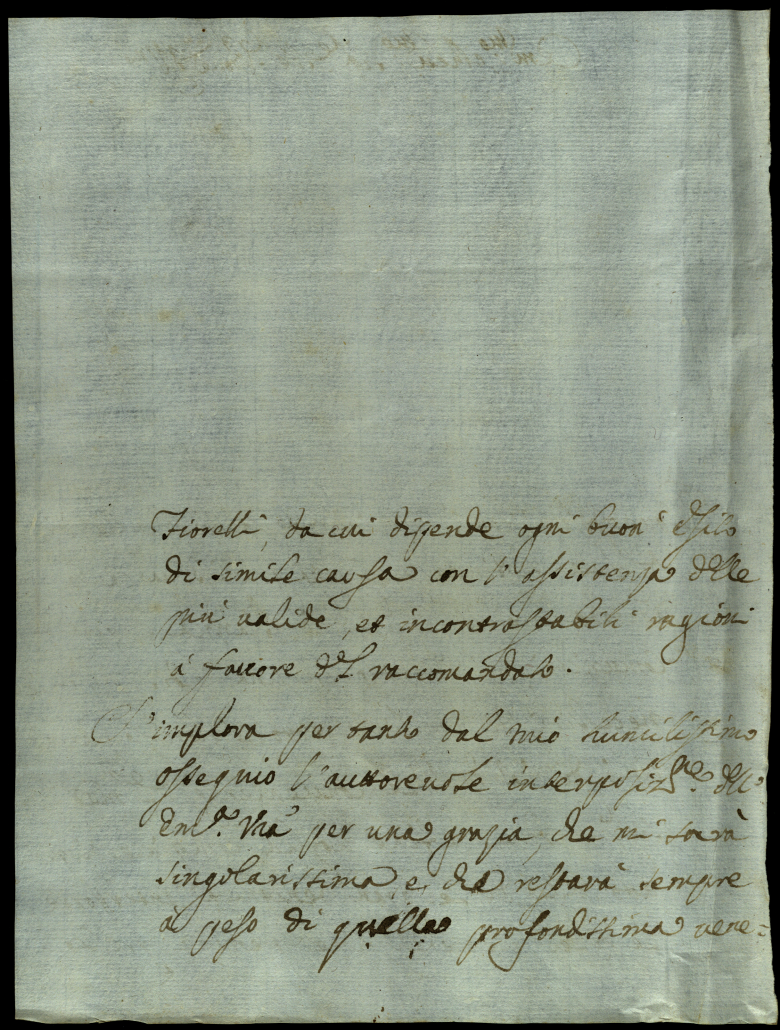 Fiorelli, da cui dipende ogni buon esito
di simile causa con l'assistenza delle
più valide, et incontrastabili ragioni
à favore del raccomandato.
S'implora per tanto dal mio humilissimo
ossequio l'auttorevole interposiz.ne dell'
Em.a Vra per una grazia, che mi sarà
singolarissima, e che restarà sempre
à peso di quella profondissima vene=